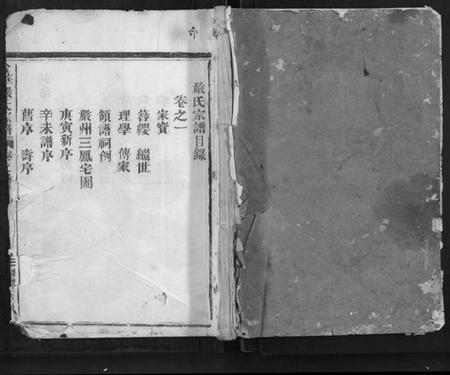 嚴氏宗譜目錄
卷之一
家寶
簪纓 繼世
理學 傳家
領譜祠例
嚴州三鳳宅圖
庚寅新序
辛未譜序
舊序 壽序